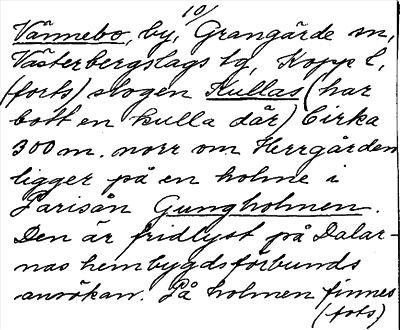 10/
Vännebo, by, Grangärde sn,
Västerbergslags tg, Kopp l,
(forts) skogen Kullas (har
bott en kulla där) Cirka
300 m. norr om Herrgården
ligger på en holme i
Parisån Gungholmen.
Den är fridlyst på Dalar-
nas hembygdsförbunds
ansökan. På holmen finnes
(fots)